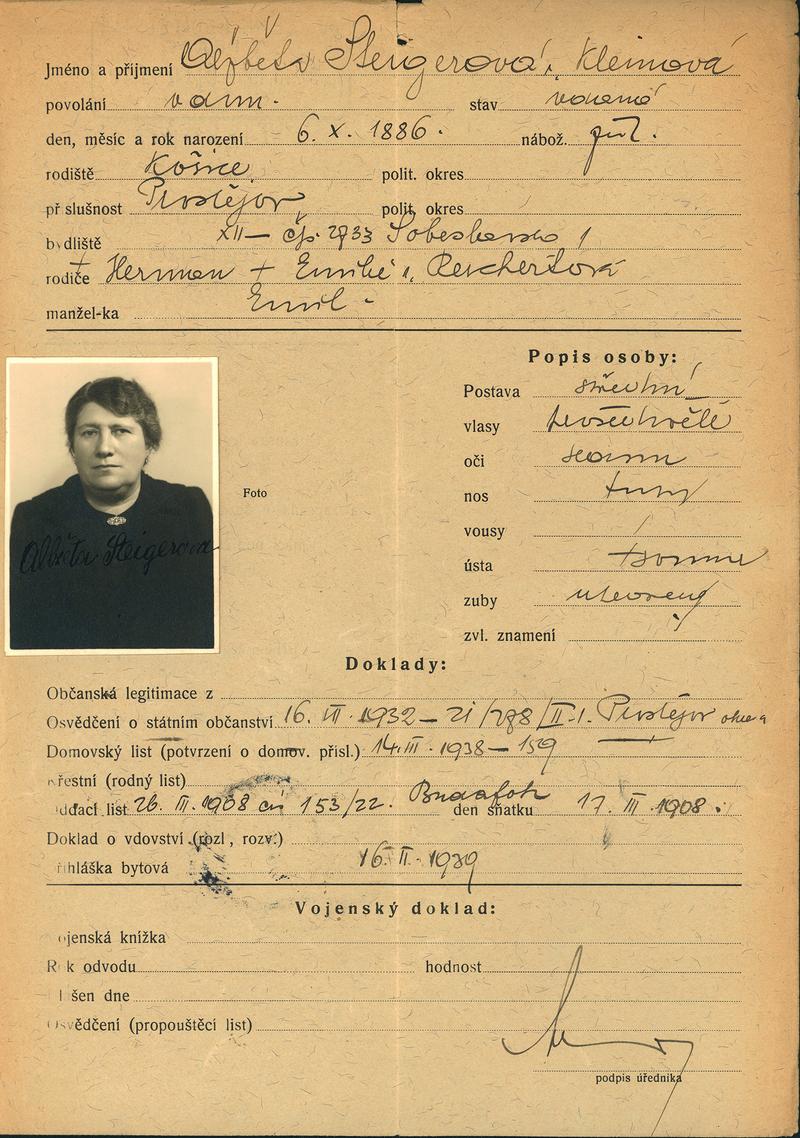 Jméno a příjmení Alžběta Steigerová r. Kleinová
povolání v dom. stav vdaná
den, měsíc a rok narození 6. X. 1886. nábož.
rodiště Košice polit. okres
př slušnost Prostějov polit. okres
bydliště XII — čp. 2733 1
rodiče Herman + Emilie r. Reichertová
manžel-ka Emil -
Popis osoby:
Postava střední
vlasy prošedivělé
oči
nos
Foto
vousy /
ústa
Alžběta Steigerová
zuby
zvl. znamení
Doklady:
Občanská legitimace z
Osvědčení o státním občanství 16. 1932 — 21/278/II-1. Prostějov
Domovský list (potvrzení o domov. přísl.) 14. III. 1938 — 159
křestní (rodný list)
ddací list 26. III. 1908 čís 153/22. Budafok den sňatku 17. III. 1908.
Doklad o vdovství (rozl, rozv.)
ihláška bytová 16. II. 1939
Vojenský doklad:
ojenská knížka
R k odvodu hodnost
šen dne
Osvědčení (propouštěcí list)
podpis úředníka